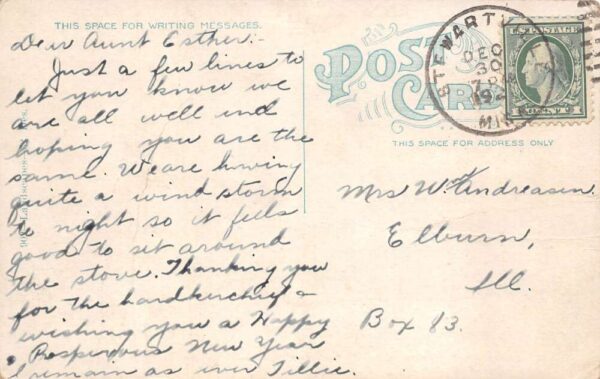 THIS SPACE FOR WRITING MESSAGES.
Dear Aunt Esther:-
Just a few lines to
let you know we
are all well and
hoping you are the
same. We are having
quite a wind storm
to night so it feels
good to sit around
the stove. Thanking you
for the handkerchief &
wishing you a Happy
& Prosperous New Year
I remain as ever Tillie.
POST
CARD
THIS SPACE FOR ADDRESS ONLY
Mrs Wm Andreasen.
Elburn,
Ill.
Box 83.
STEWARTV
DEC
30
MIN
U.S. POSTAGE
1 CENT 1